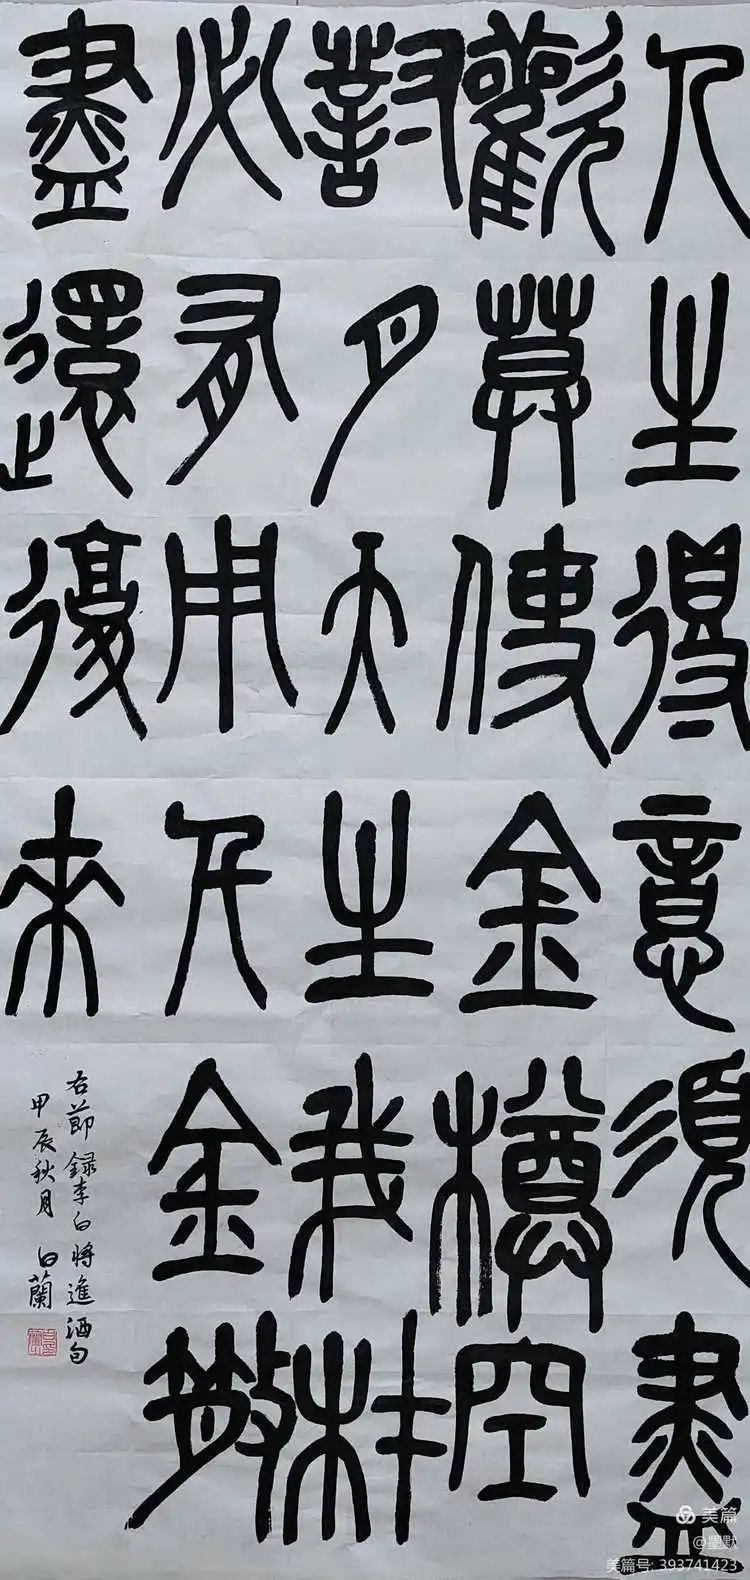 人生得意須盡
歡莫使金樽空
對月天生我材
必有用千金散
盡還復來
右節録李白將進酒句
甲辰秋月 白蘭
美篇
@墨默
美篇号: 393741423